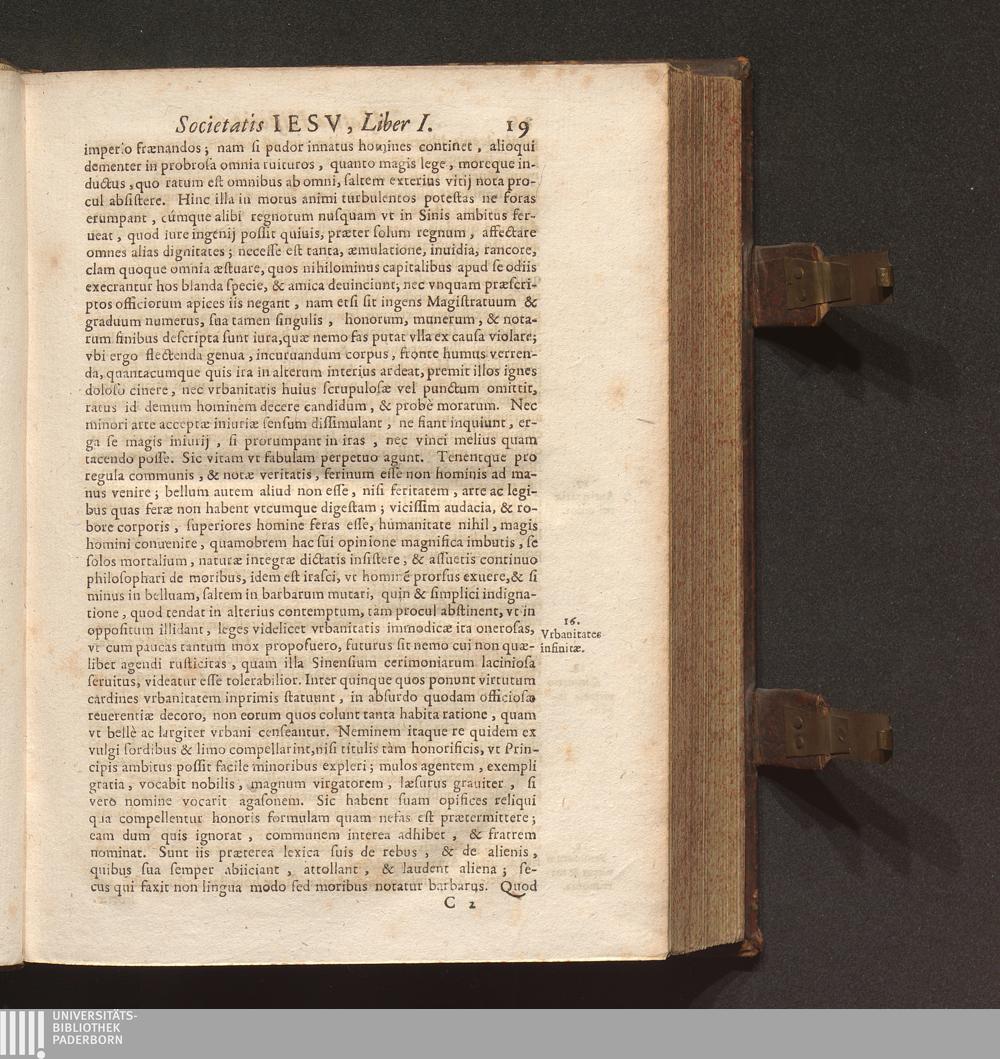 Societatis IESV, Liber I. 19
imperio frænandos; nam ſi pudor innatus homines continet, alioqui
dementer in probroſa omnia ruituros, quanto magis lege, moreque in-
ductus, quo ratum eſt omnibus ab omni, ſaltem exterius vitij nota pro-
cul abſiſtere. Hinc illa in motus animi turbulentos poteſtas ne foras
erumpant, cúmque alibi regnorum nuſquam vt in Sinis ambitus fer-
ueat, quod iure ingenij poſſit quiuis, præter ſolum regnum, affectare
omnes alias dignitates; neceſſe eſt tanta, æmulatione, inuidia, rancore,
clam quoque omnia æſtuare, quos nihilominus capitalibus apud ſe odiis
execrantur hos blanda ſpecie, & amica deuinciunt; nec vnquam præſcri-
ptos officiorum apices iis negant, nam etſi ſit ingens Magiſtratuum &
graduum numerus, ſua tamen ſingulis, honorum, munerum, & nota-
rum finibus deſcripta ſunt iura, quæ nemo fas putat vlla ex cauſa violare;
vbi ergo flectenda genua, incuruandum corpus, fronte humus verren-
da, quantacumque quis ira in alterum interius ardeat, premit illos ignes
doloſo cinere, nec vrbanitatis huius ſcrupuloſæ vel punctum omittit,
ratus id demum hominem decere candidum, & probè moratum. Nec
minori arte acceptæ iniuriæ ſenſum diſſimulant, ne fiant inquiunt, er-
ga ſe magis iniurij, ſi prorumpant in iras, nec vinci melius quam
tacendo poſſe. Sic vitam vt fabulam perpetuo agunt. Tenentque pro
regula communis, & notæ veritatis, ferinum eſſe non hominis ad ma-
nus venire; bellum autem aliud non eſſe, niſi feritatem, arte ac legi-
bus quas feræ non habent vtcumque digeſtam; viciſſim audacia, & ro-
bore corporis, ſuperiores homine feras eſſe, humanitate nihil, magis
homini conuenire, quamobrem hac ſui opinione magnifica imbutis, ſe
ſolos mortalium, naturæ integræ dictatis inſiſtere, & aſſuetis continuo
philoſophari de moribus, idem eſt iraſci, vt hominē prorſus exuere, & ſi
minus in belluam, ſaltem in barbarum mutari, quin & ſimplici indigna-
tione, quod tendat in alterius contemptum, tàm procul abſtinent, vt in
oppoſitum illidant, leges videlicet vrbanitatis immodicæ ita oneroſas,
vt cum paucas tantum mox propoſuero, futurus ſit nemo cui non quæ-
libet agendi ruſticitas, quam illa Sinenſium cerimoniarum lacinioſa
ſeruitus, videatur eſſe tolerabilior. Inter quinque quos ponunt virtutum
cardines vrbanitatem inprimis ſtatuunt, in abſurdo quodam officioſæ
reuerentiæ decoro, non eorum quos colunt tanta habita ratione, quam
vt bellè ac largiter vrbani cenſeantur. Neminem itaque re quidem ex
vulgi ſordibus & limo compellarint, niſi titulis tàm honorificis, vt Prin-
cipis ambitus poſſit facile minoribus expleri; mulos agentem, exempli
gratia, vocabit nobilis, magnum virgatorem, læſurus grauiter, ſi
vero nomine vocarit agaſonem. Sic habent ſuam opifices reliqui
qua compellentur honoris formulam quam nefas eſt prætermittere;
eam dum quis ignorat, communem interea adhibet, & fratrem
nominat. Sunt iis præterea lexica ſuis de rebus, & de alienis,
quibus ſua ſemper abiiciant, attollant, & laudent aliena; ſe-
cus qui faxit non lingua modo ſed moribus notatur barbarus. Quod
C 2
16.
Vrbanitates
infinitæ.
UNIVERSITÄTS-
BIBLIOTHEK
PADERBORN